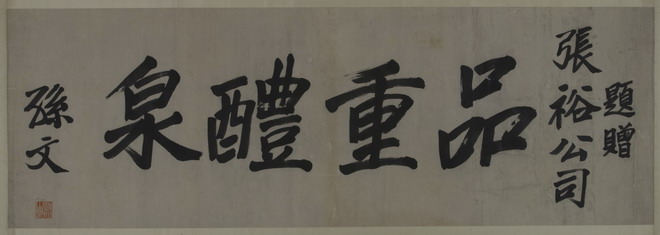 題贈
張裕公司
品重醴泉
孫文